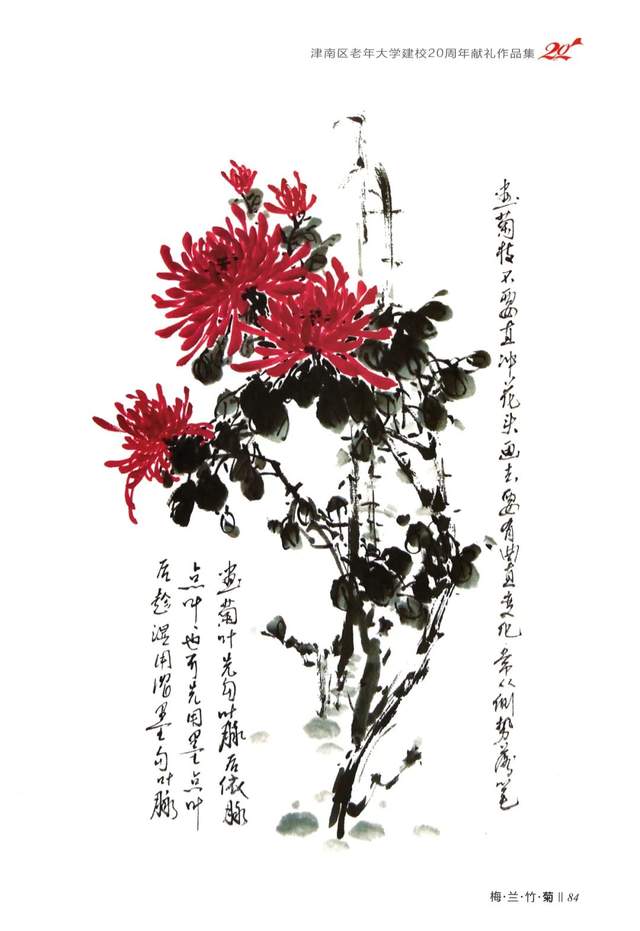 津南区老年大学建校20周年献礼作品集
20
画菊枝不要直冲花头画去要有曲直变化常从侧势落笔
画菊叶先勾叶脉后依脉
点叶也可先用墨点叶
后趁湿用浓墨勾叶脉
梅·兰·竹·菊 || 84